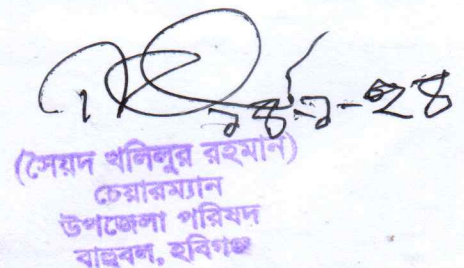 (সৈয়দ খলিলুর রহমান)
চেয়ারম্যান
উপজেলা পরিষদ
বাহুবল, হবিগঞ্জ